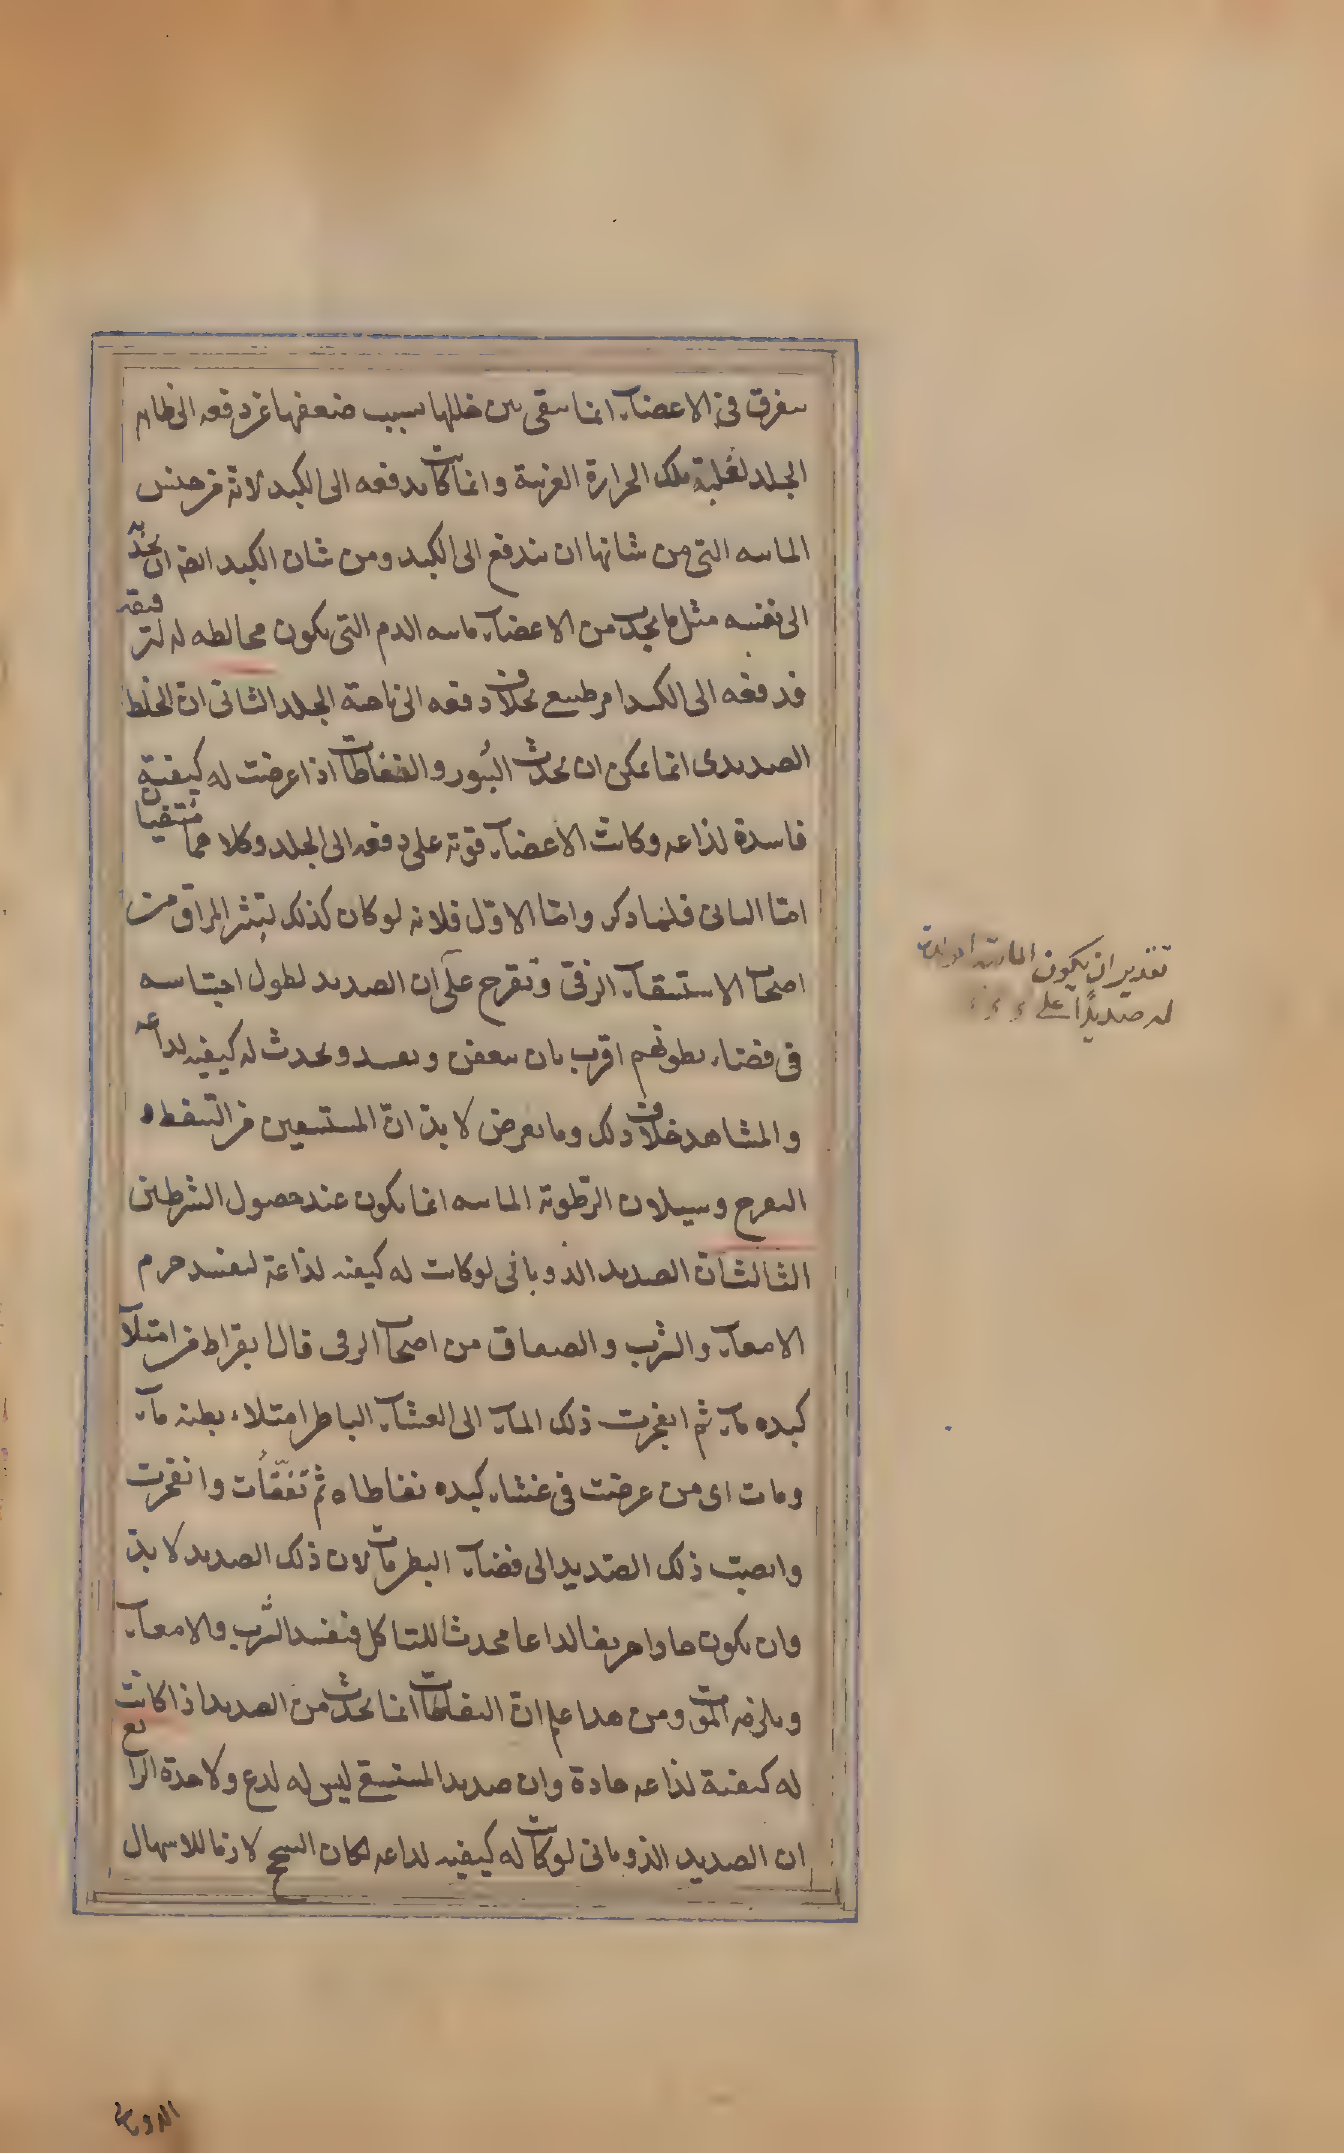 يتفرق في الاعضاء انما يبقى بين خللها بسبب ضعفها عن دفعه الى ظاهر
الجلد لغلبة تلك الحرارة الغريبة وانما كانت تدفعه الى الكبد لانه من جنس
المائية التي من شانها ان يندفع الى الكبد ومن شان الكبد ايضا ان تجذبه
الى نفسه مثل ما يجذب من الاعضاء مائية الدم التي يكون مخالطه له لترقيقه
فدفعه الى الكبد امر طبيعي بخلاف دفعه الى ناحية الجلد الثاني ان الخلط
الصديدى انما يمكن ان يحدث البثور والنفاطات اذا عرضت له كيفية
فاسدة لذاعه وكانت الاعضاء قوية على دفعه الى الجلد وكلاهما منتفيان
امّا الثانى فلما ذكر وامّا الاوّل فلانه لو كان كذلك لتبثر المراق من
اصحاب الاستسقاء الزقى وتقرح على ان الصديد لطول احتباسه
فى فضاء بطونهم اقرب بان يتعفن ويفسد ويحدث له كيفيه لذاعه
والمشاهد خلاف ذلك وما يعرض لابدان المستسقين من التنفط و
التقرح وسيلان الرطوبة المائيه انما يكون عند حصول الشرطين
الثالث ان الصديد الذوبانى لو كانت له كيفيه لذاعة لفسد جرم
الامعاء والثرب والصفاق من اصحاب الزقى قال ابقراط من امتلأ
كبده ماء ثم انفجرت ذلك الماء الى الغشاء الباطن امتلاء بطنه ماء
ومات اى من عرضت فى غشاء كبده نفاطات ثم تفقّأت وانفجرت
وانصبت ذلك الصديد الى فضاء البطن مات لان ذلك الصديد لا بد
وان يكون حادا حريفا لذاعا محدثا للتاكل فيفسد الثرب والامعاء
ويلزمه الموت ومن هذا علم ان النفاطات انما يحدث من الصديد اذا كانت
له كيفية لذاعه حادة وان صديد المستسقى ليس له لدع ولا حدة الرابع
ان الصديد الذوبانى لو كانت له كيفيه لذاعه لكان السحج لازما للاسهال
تقدير ان يكون المائية
له صديدًا على
الذوبانى